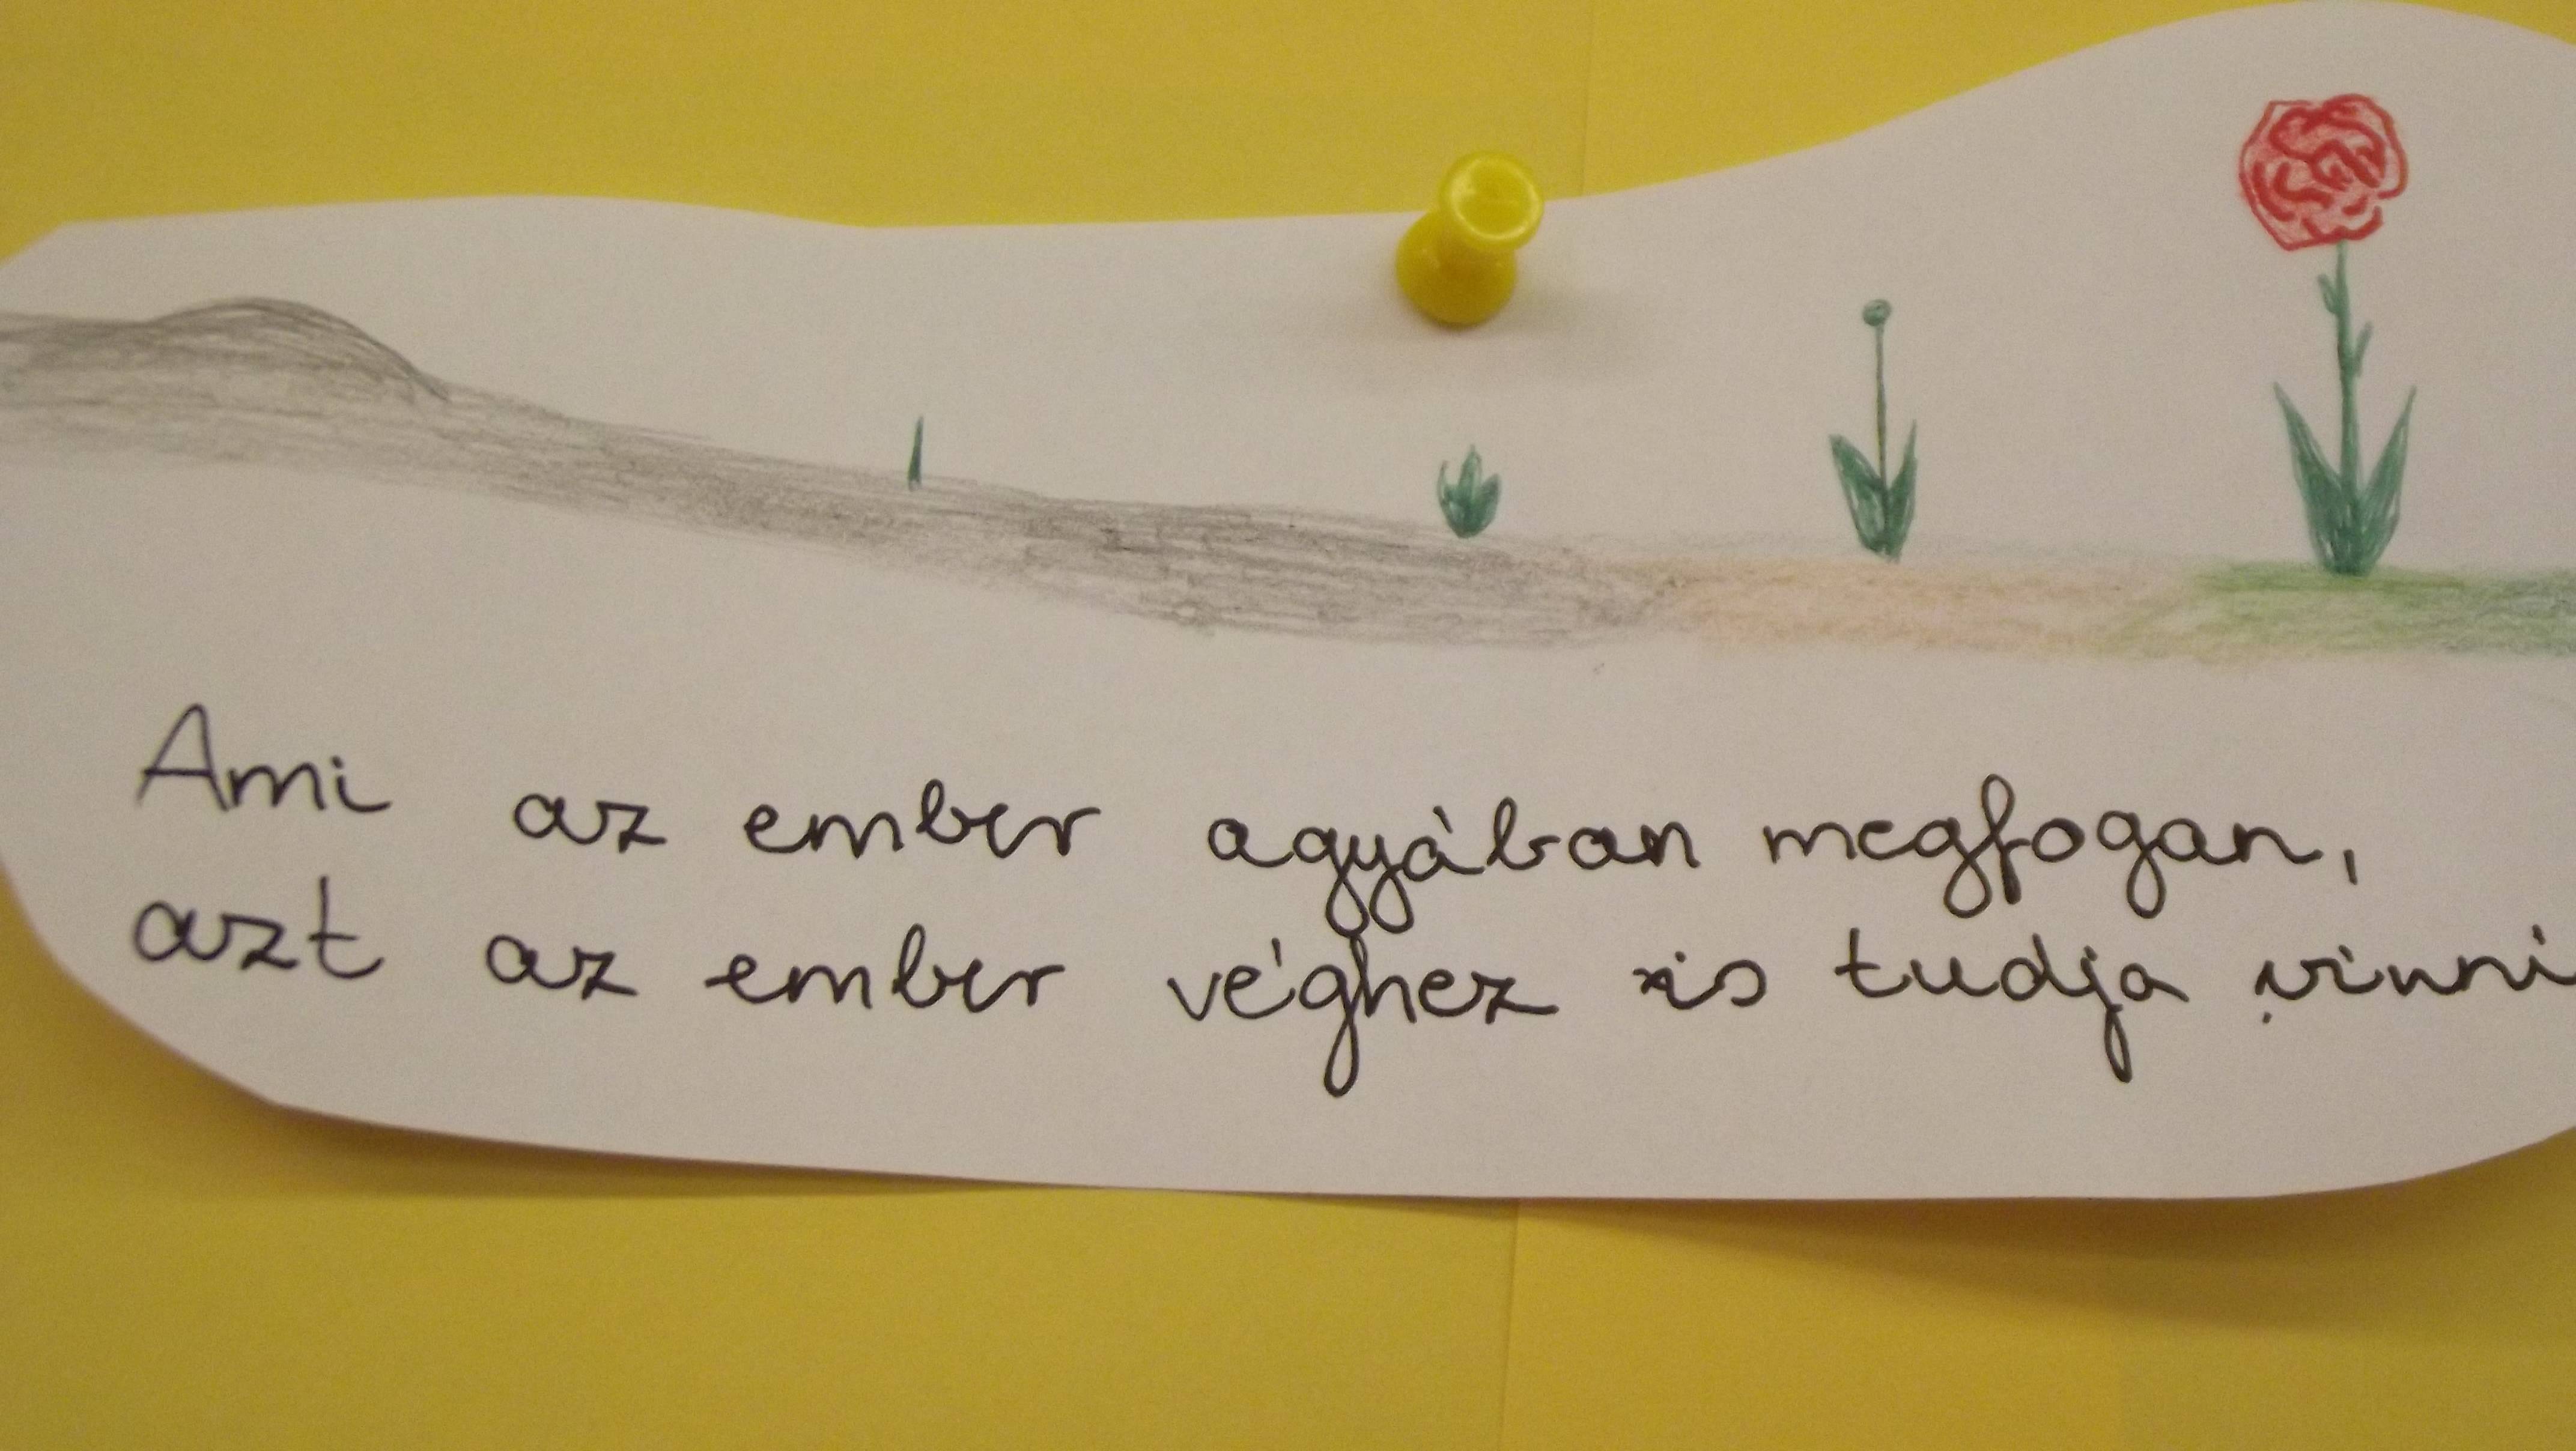 Ami az ember agyában megfogan,
azt az ember véghez is tudja vinni